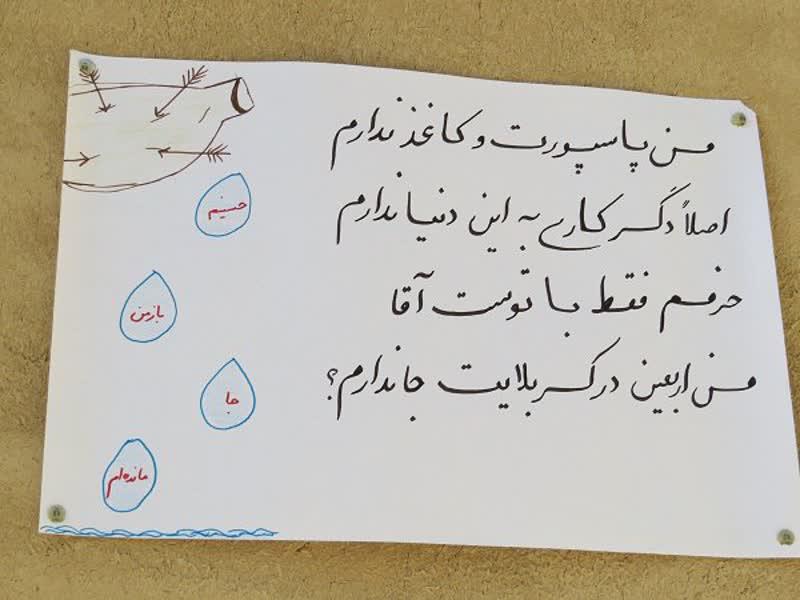 من پاسپورت و کاغذ ندارم
اصلاً دگر کاری به این دنیا ندارم
حرفم فقط با توست آقا
من اربعین در کربلایت جا ندارم؟
حسینم
باز من
جا
مانده‌ام